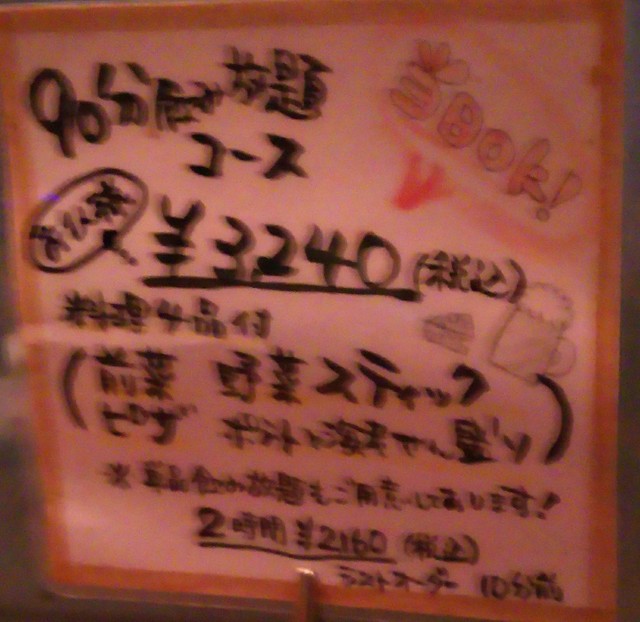 90分飲み放題
コース
当日OK!
お1人様 ¥3,240(税込)
料理4品付
(前菜 野菜スティック
ピザ ポテトと海老せん盛り)
※単品飲み放題もご用意しております!
2時間 ¥2160 (税込)
ラストオーダー 10分前